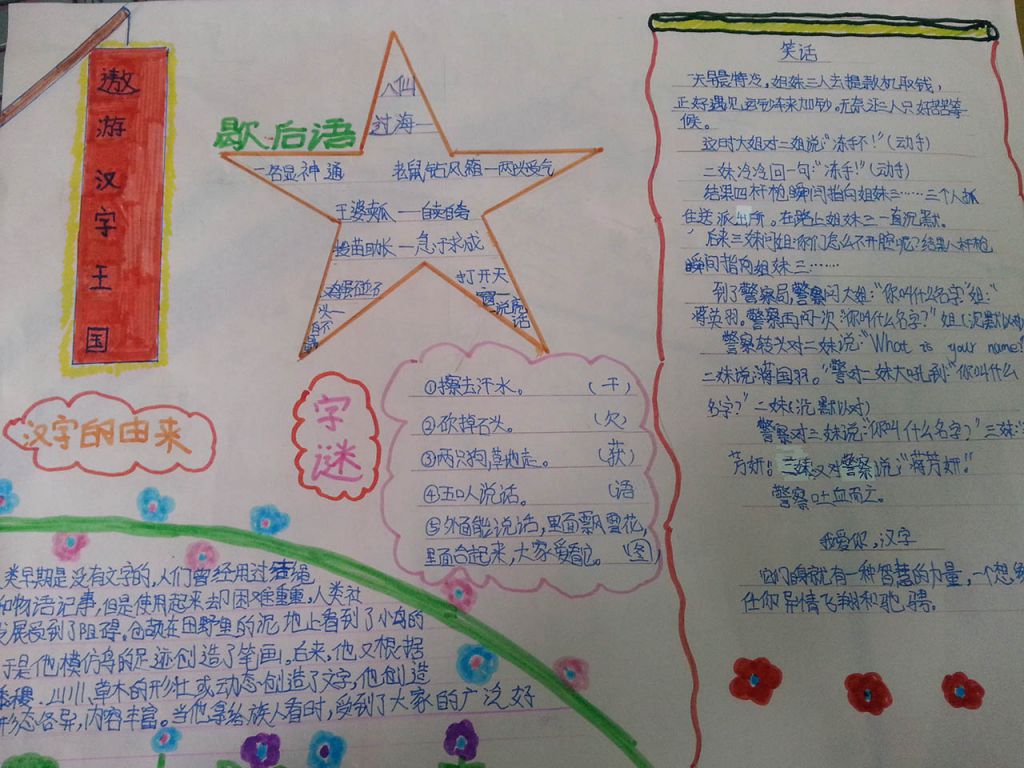 遨游汉字王国
歇后语
八仙
过海—
—各显神通
老鼠钻风箱—两头受气
王婆卖瓜——自卖自夸
拔苗助长—急于求成
鸡蛋碰石
头—
打开天
窗—说亮
话
字谜
①擦去汗水。(干)
②砍掉石头。(欠)
③两只狗,草地走。(获)
④五口人说话。(语
⑤外面能说话,里面飘雪花,
里面合起来,大家爱看它。(图)
汉字的由来
类早期是没有文字的,人们曾经用过结绳
和物语记事,但是使用起来却困难重重,人类社
发展受到了阻碍。仓颉在田野里的泥地上看到了小鸟的
于是他模仿鸟的足迹创造了笔画。后来,他又根据
山川、草木的形壮或动态创造了文字,他创造
形态各异,内容丰富。当他拿给族人看时,受到了大家的广泛好
笑话
一天早晨特冷,姐妹三人去提款机取钱,
正好遇见运钞车来加钞。无奈三人只好苦苦等
候。
这时大姐对二姐说:“冻不!”(动手)
二妹冷冷回一句:“冻手!”(动手)
结果四杆枪瞬间指向姐妹三……三个人抓
住送派出所。在路上姐妹三一直沉默。
后来三妹问姐:你们怎么不开腔呢?结果八杆枪
瞬间指向姐妹三……
到了警察局,警察问大姐:“你叫什么名字”姐:“
蒋英羽。警察再问一次:你叫什么名字?”姐(沉默以对
警察转头对二妹说:“What is your name?
二妹说:蒋国羽。“警对二妹大吼到:“你叫什么
名字?”二妹(沉默以对)
警察对三妹说:“你叫什么名字?”三妹:
芳妍。三妹又对警察说:“蒋芳妍。”
警察吐血而亡。
我爱你,汉字
它们身就有一种智慧的力量,一个想
任你异情飞翔和驰骋。